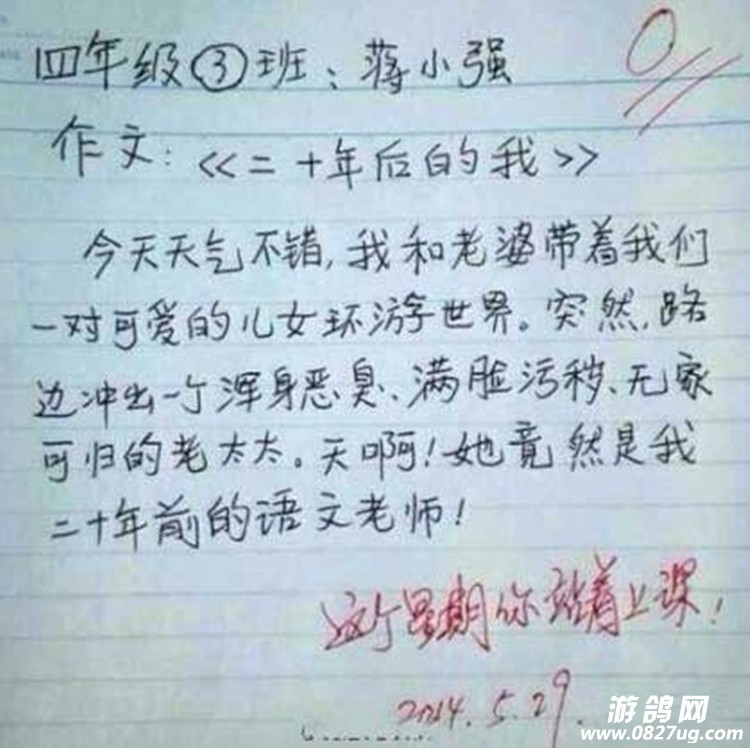 四年级③班:蒋小强
0
作文:<<二十年后的我>>
今天天气不错,我和老婆带着我们
一对可爱的儿女环游世界。突然,路
边冲出一个浑身恶臭、满脸污秽、无家
可归的老太太。天啊!她竟然是我
二十年前的语文老师!
这个星期你站着上课!
2014.5.29.
游鸽网
www.0827ug.com